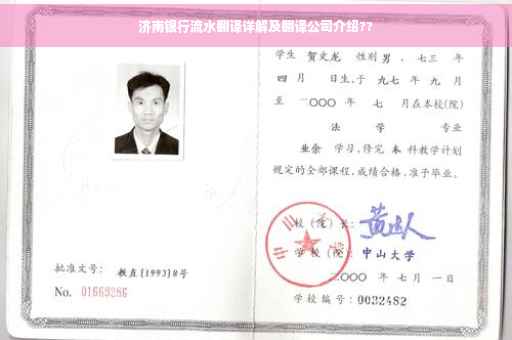 济南银行流水翻译详解及翻译公司介绍??
学生 贺文龙 性别 男 、七三 年
四 月 日生，于 九七 年 九 月
至 二〇〇〇 年 七 月在本校(院)
法 学 专业
业余 学习，修完 本 科教学计划
规定的全部课程，成绩合格，准予毕业。
校 (院) 长：
学 校 (院)： 中山大学
二〇〇〇 年 七 月 一 日
学校编号：0032482
批准文号： 教直[1993]8号
No. 01669286